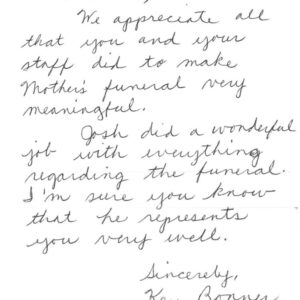 We appreciate all
that you and your
staff did to make
Mother's funeral very
meaningful.
Josh did a wonderful
job with everything
regarding the funeral.
I'm sure you know
that he represents
you very well.
Sincerely,